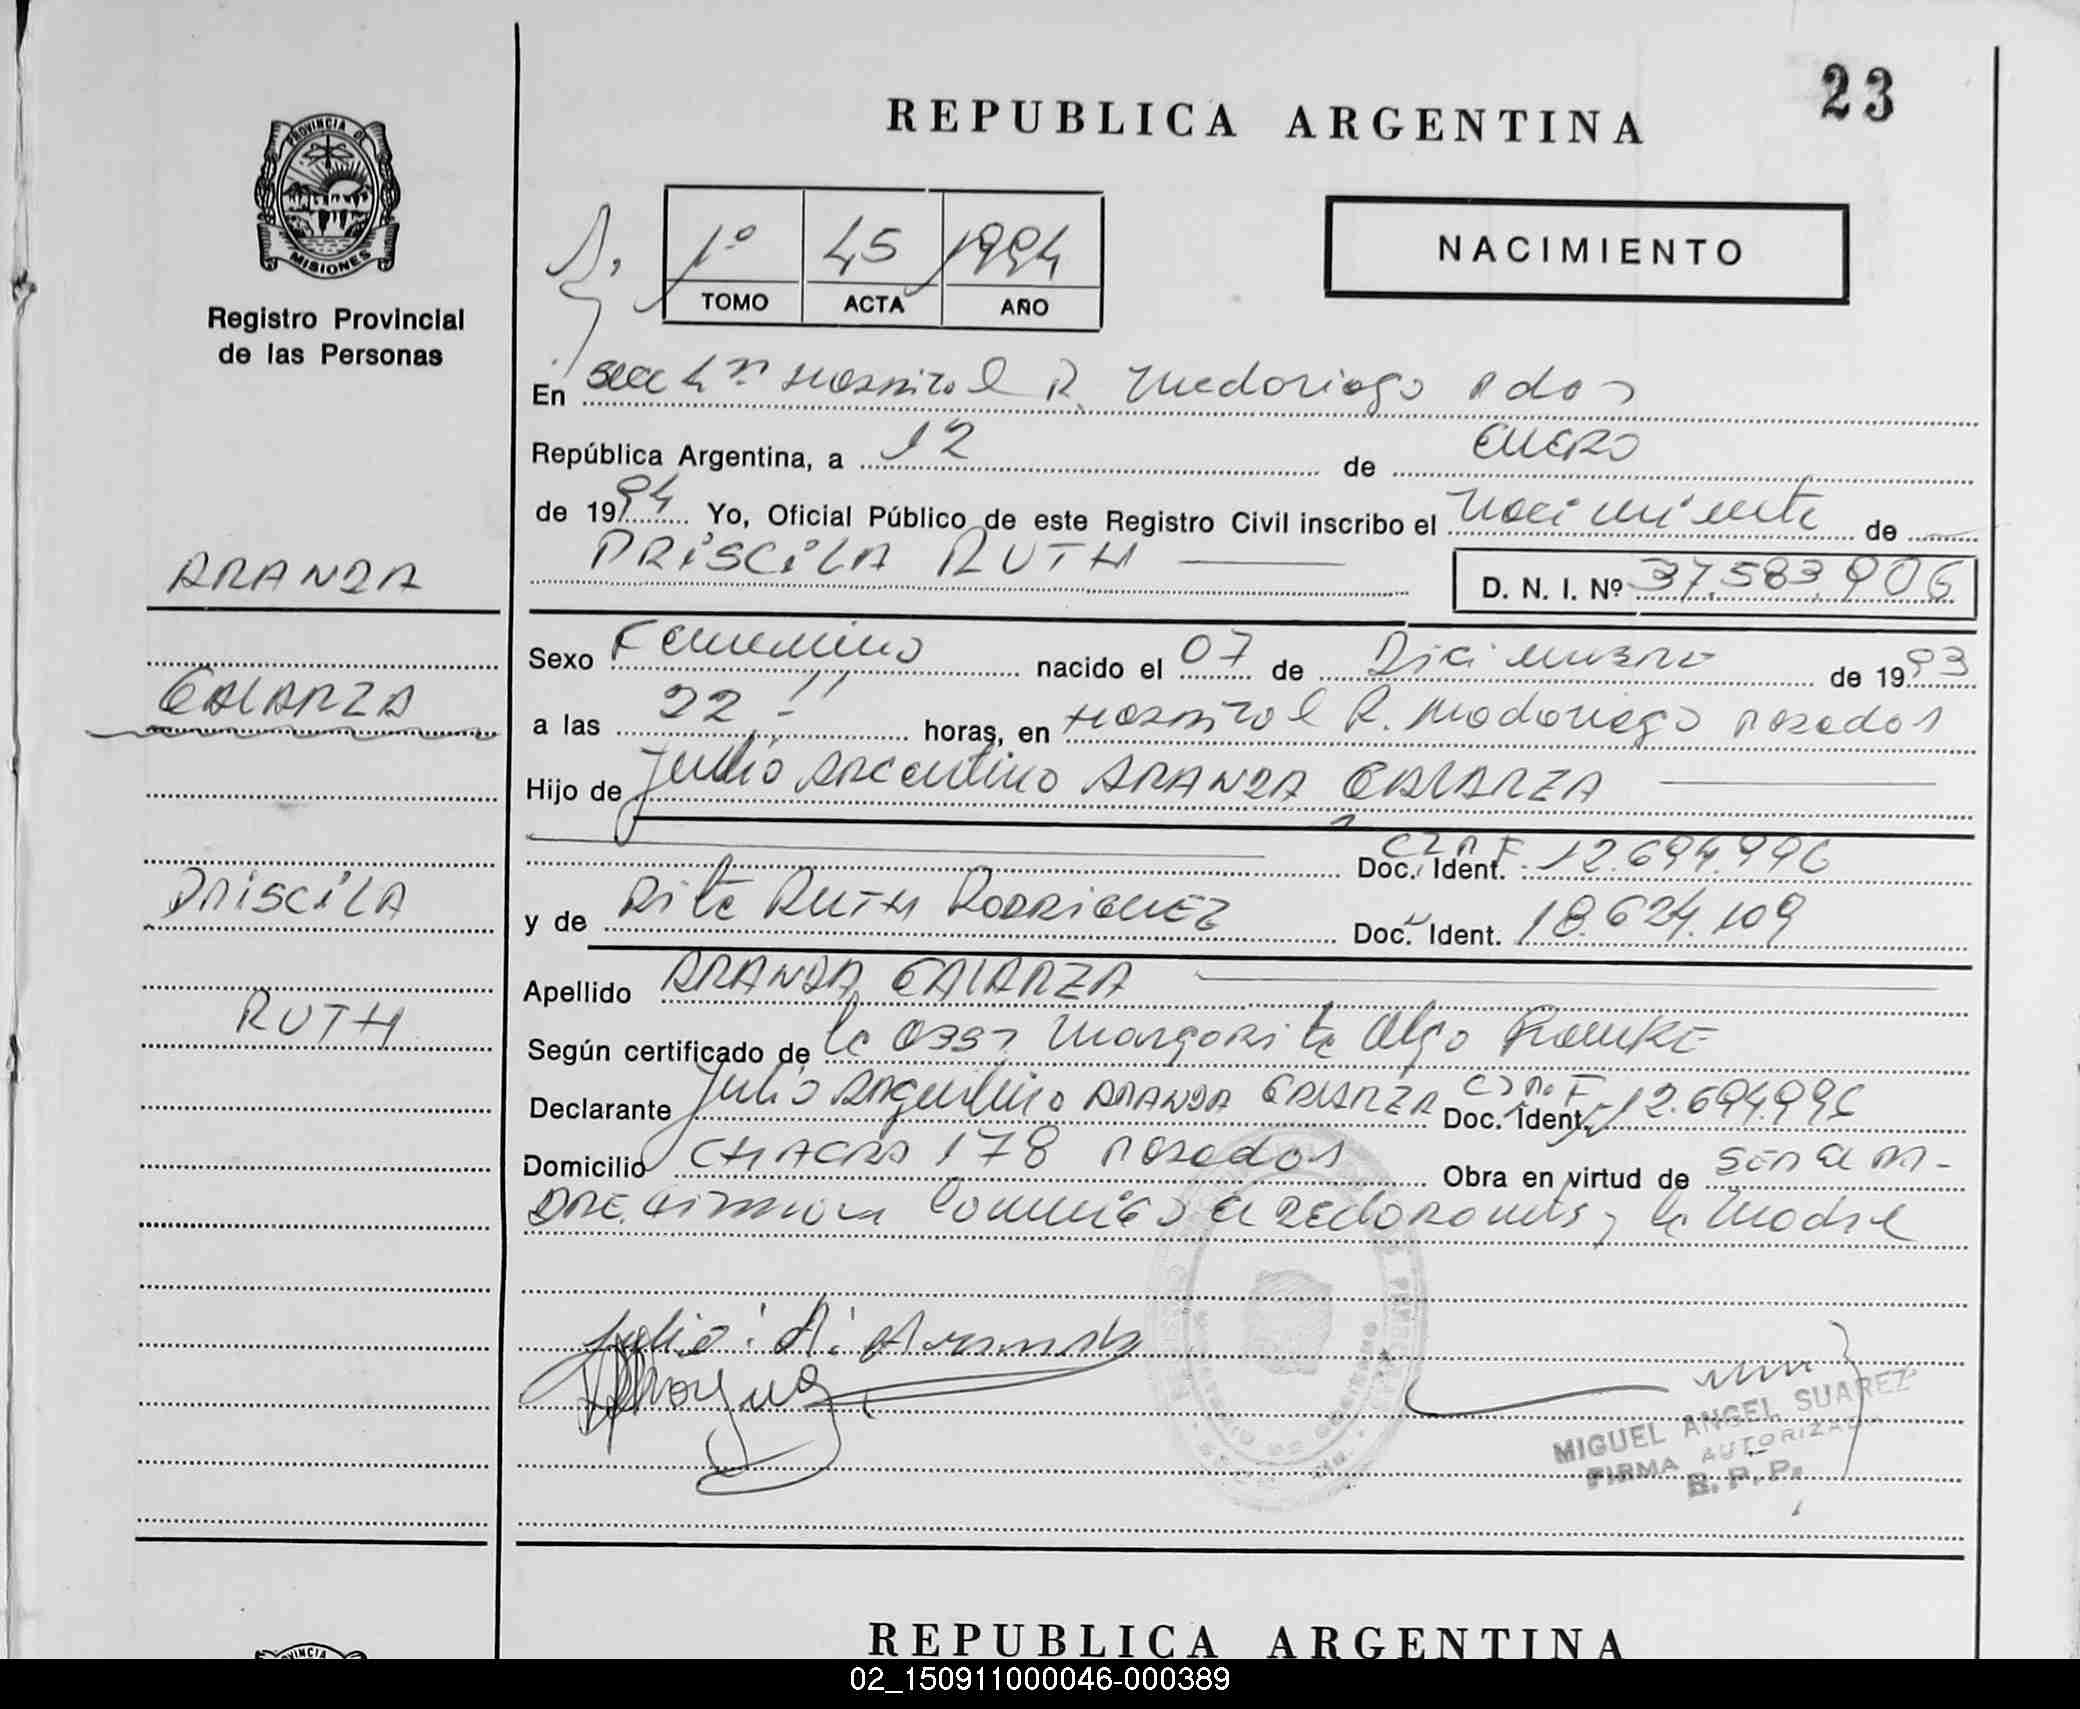 23
REPUBLICA ARGENTINA
PROVINCIA DE
MISIONES
Registro Provincial
de las Personas
1º 45 1994
TOMO ACTA AÑO
NACIMIENTO
En Secc 4ª Hospital R. Madariaga Pdas
República Argentina, a 12 de ENERO
de 1994 Yo, Oficial Público de este Registro Civil inscribo el Nacimiento de
PRISCILA RUTH
D. N. I. Nº 37.583.906
ARANDA
GALARZA
PRISCILA
RUTH
Sexo Femenino nacido el 07 de Diciembre de 1993
a las 22 horas, en Hospital R. Madariaga Posadas
Hijo de Julio Argentino ARANDA GALARZA
Doc. Ident. 12.694.996
y de Rita RUTH RODRIGUEZ Doc. Ident. 18.624.109
Apellido ARANDA GALARZA
Según certificado de la Obst. Margarita Olga
Declarante Julio Argentino ARANDA GALARZA Doc. Ident. 12.694.996
Domicilio CHACRA 178 Posadas Obra en virtud de ser el
conmigo el declarante y la madre
Julio A. Aranda
MIGUEL ANGEL SUAREZ
FIRMA AUTORIZADA
R. P. P.
REPUBLICA ARGENTINA
02_150911000046-000389